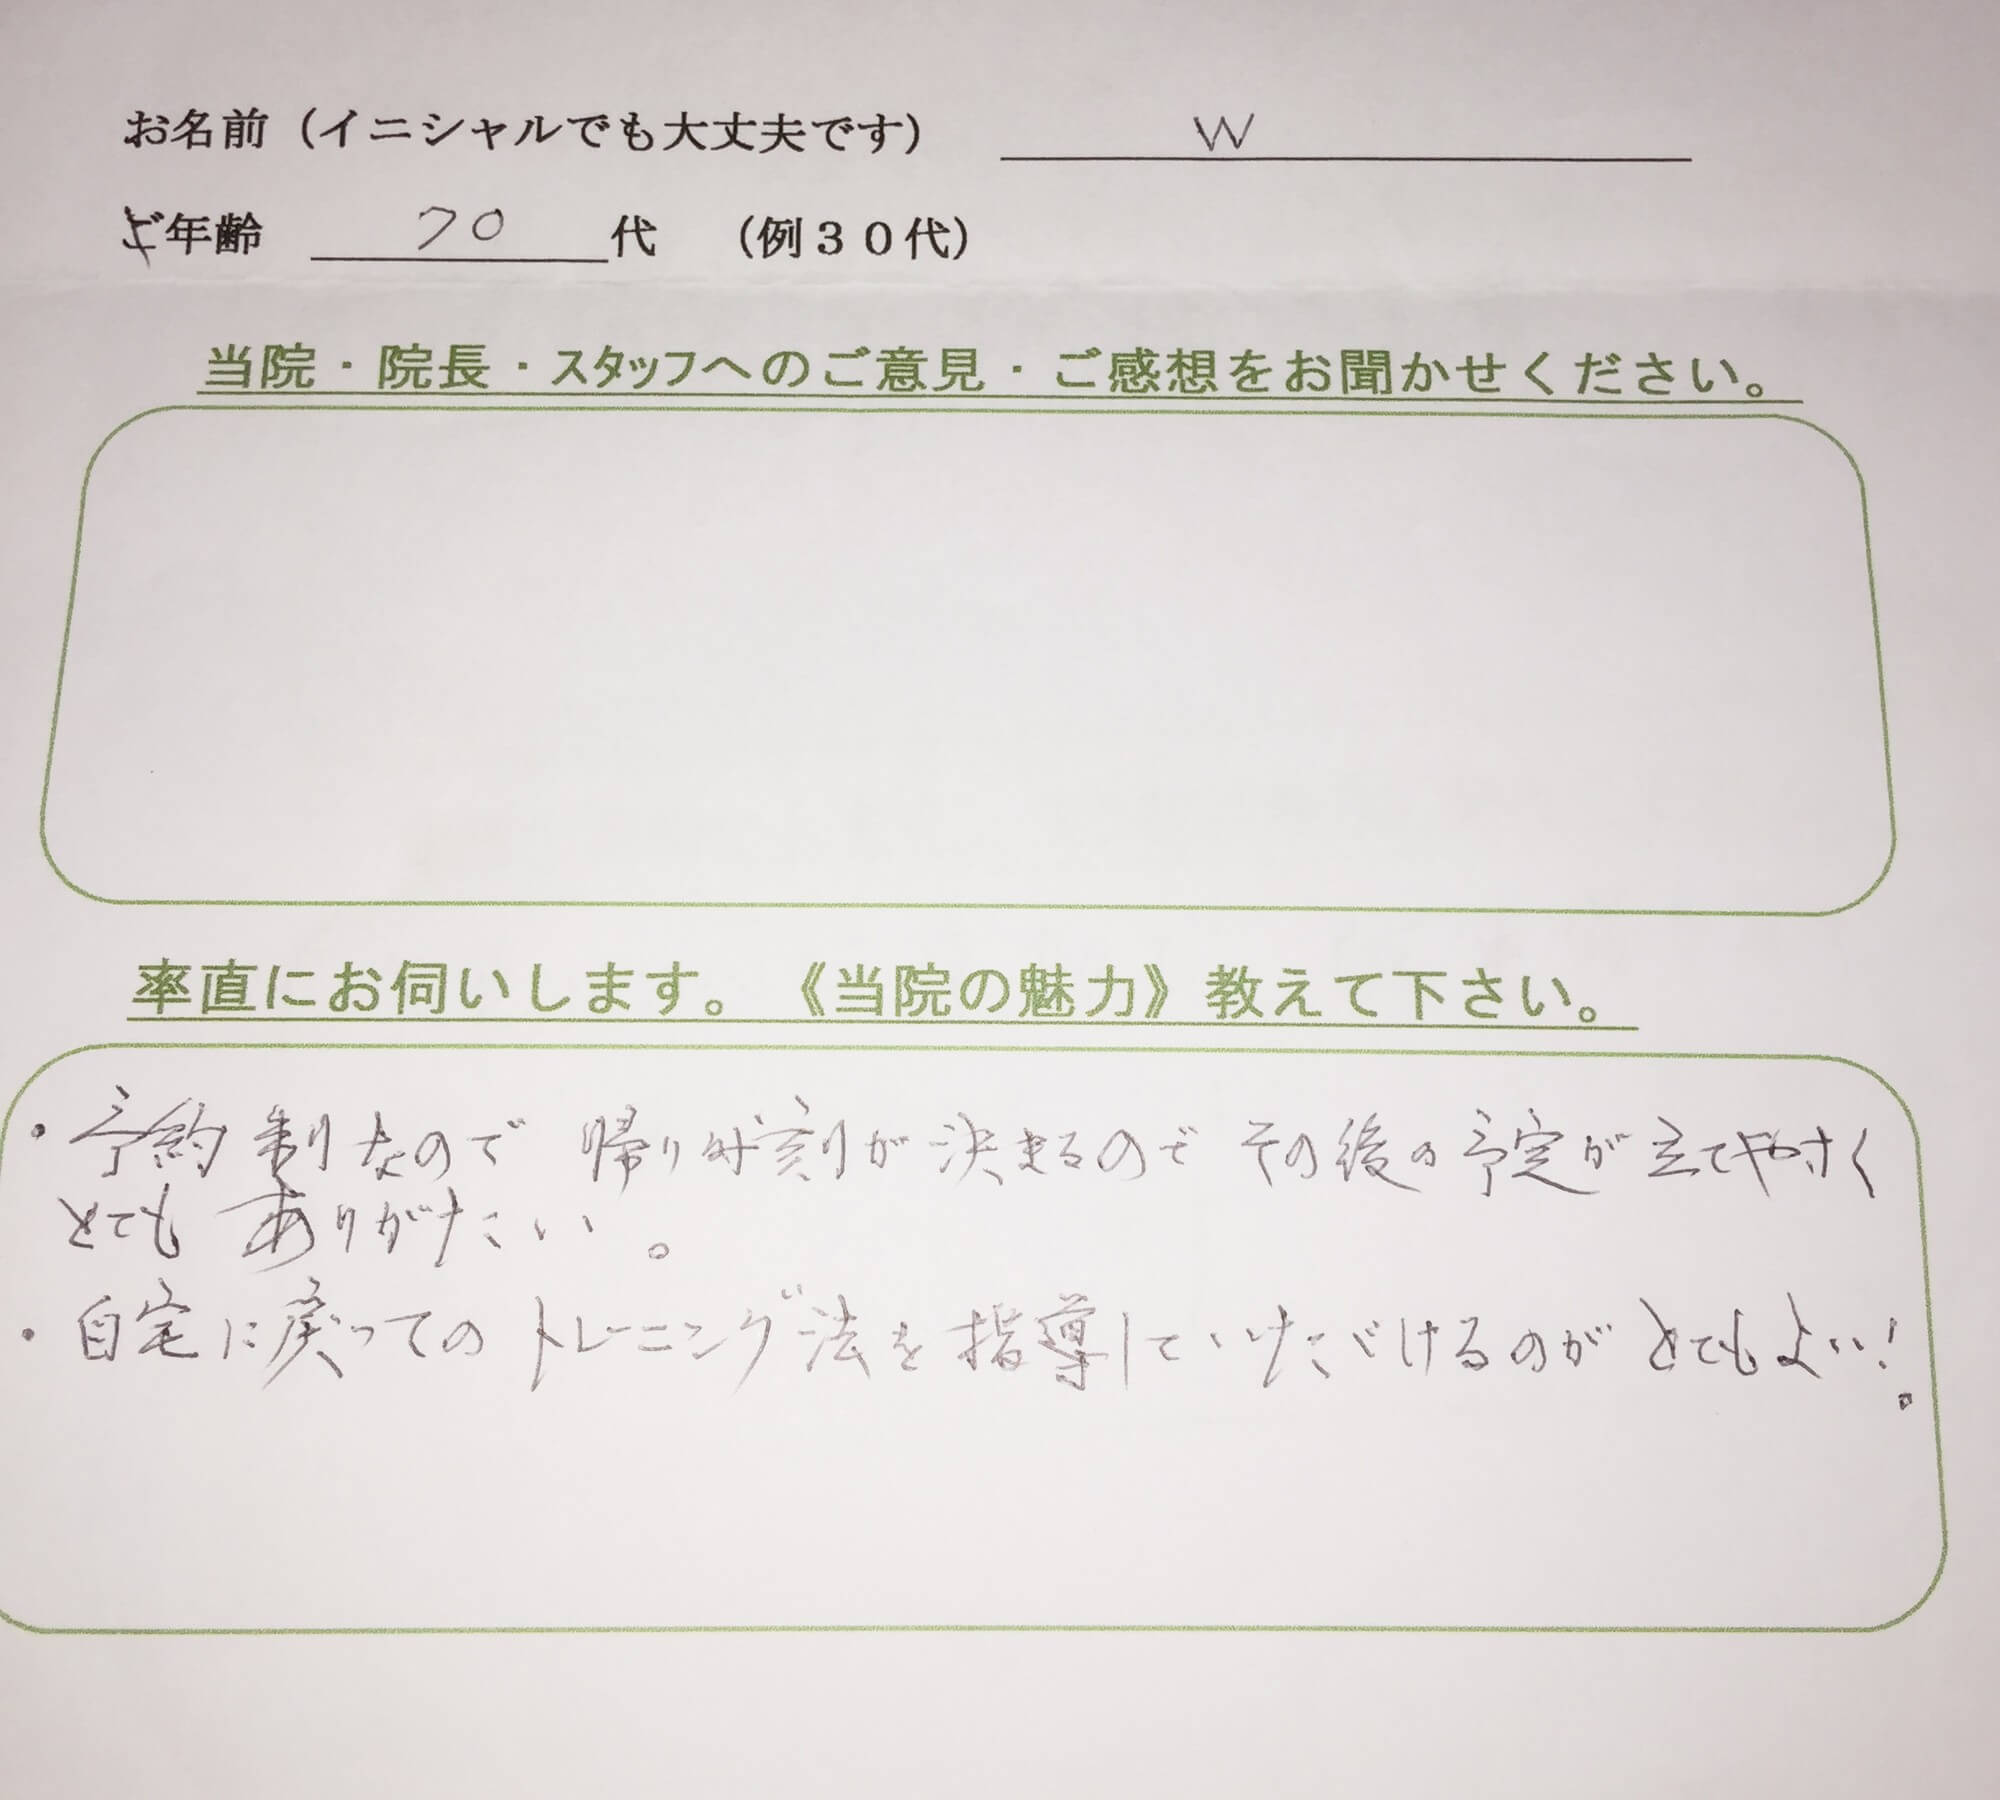 お名前（イニシャルでも大丈夫です） W
ご年齢 70代 （例３０代）
当院・院長・スタッフへのご意見・ご感想をお聞かせください。
率直にお伺いします。《当院の魅力》教えて下さい。
・予約制なので 帰り時刻が決まるので その後の予定が立てやすく
とても ありがたい。
・自宅に戻ってのトレーニング法を指導していただけるのが とてもよい!。